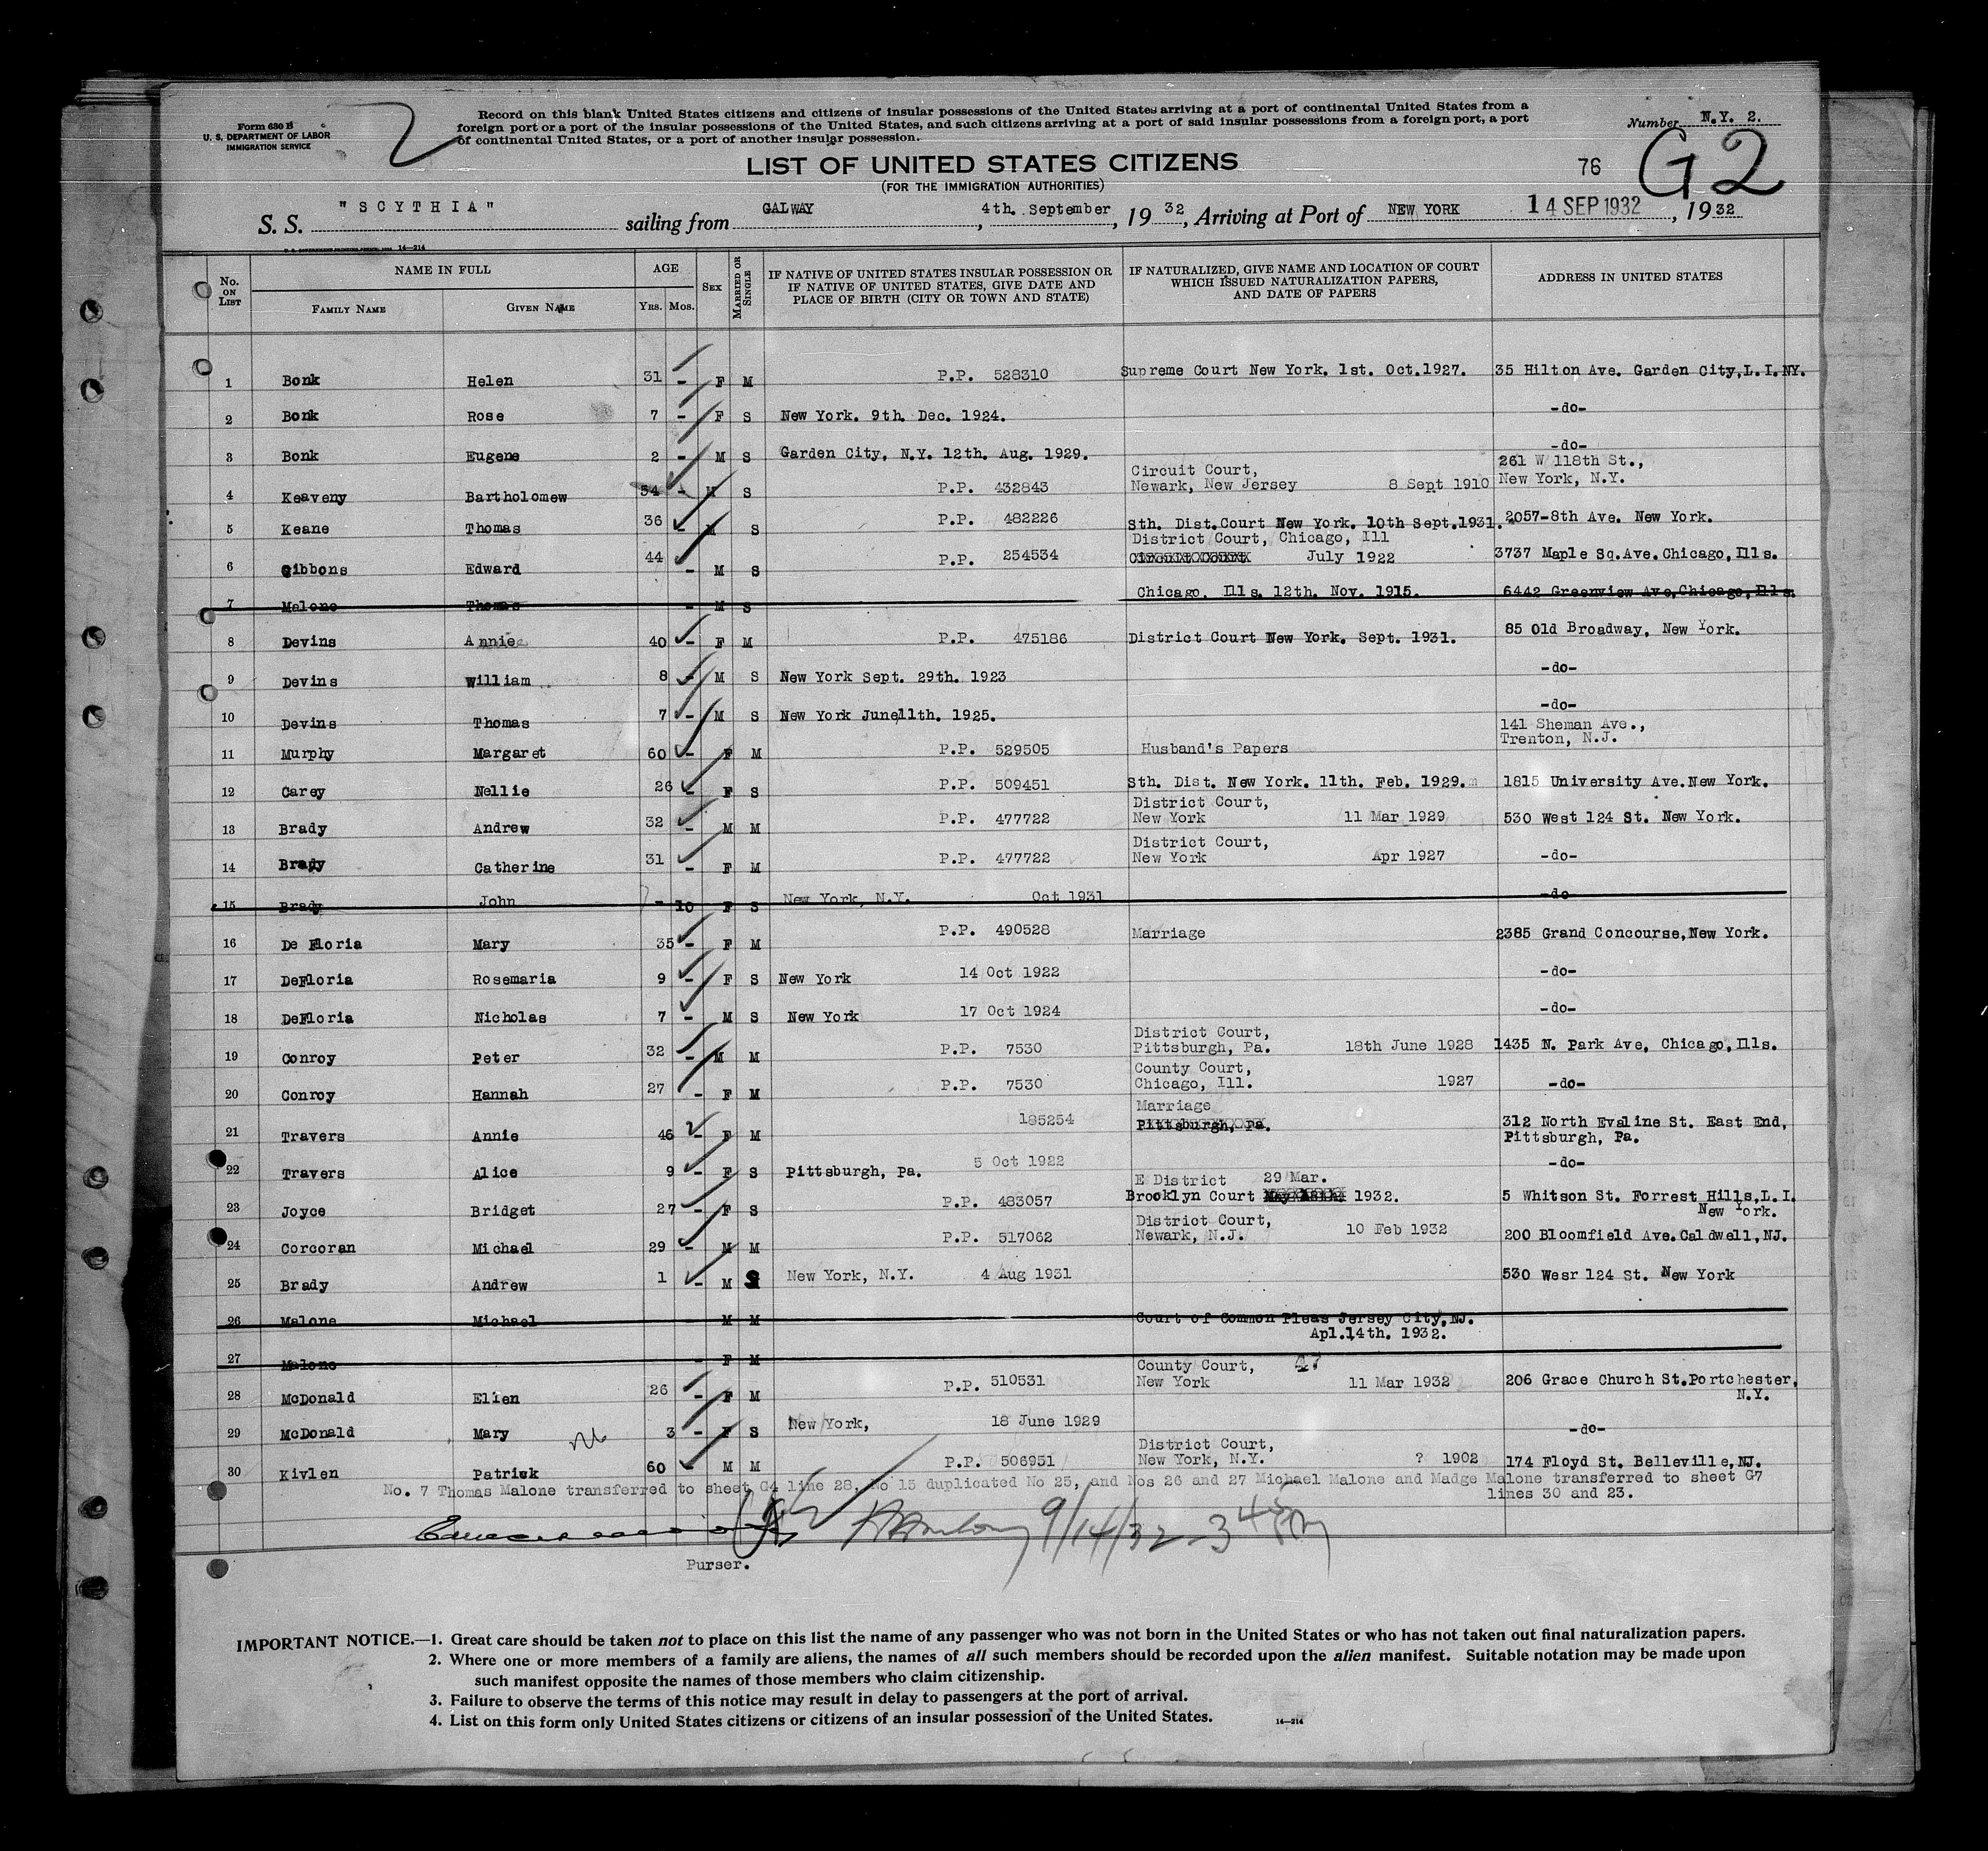 Form 630 B
U. S. DEPARTMENT OF LABOR
IMMIGRATION SERVICE
Record on this blank United States citizens and citizens of insular possessions of the United States arriving at a port of continental United States from a
foreign port or a port of the insular possessions of the United States, and such citizens arriving at a port of said insular possessions from a foreign port, a port
of continental United States, or a port of another insular possession.
Number N.Y. 2.
LIST OF UNITED STATES CITIZENS
(FOR THE IMMIGRATION AUTHORITIES)
76
G2
S. S. "SCYTHIA" sailing from GALWAY, 4th. September, 19 32, Arriving at Port of NEW YORK 14 SEP 1932, 19 32
14—214
No. ON LIST
NAME IN FULL
FAMILY NAME
GIVEN NAME
AGE
YRS. MOS.
SEX
MARRIED OR SINGLE
IF NATIVE OF UNITED STATES INSULAR POSSESSION OR
IF NATIVE OF UNITED STATES, GIVE DATE AND
PLACE OF BIRTH (CITY OR TOWN AND STATE)
IF NATURALIZED, GIVE NAME AND LOCATION OF COURT
WHICH ISSUED NATURALIZATION PAPERS,
AND DATE OF PAPERS
ADDRESS IN UNITED STATES
1 Bonk Helen 31 - F M P.P. 528310 Supreme Court New York. 1st. Oct.1927. 35 Hilton Ave. Garden City,L.I.NY.
2 Bonk Rose 7 - F S New York. 9th. Dec. 1924. -do-
3 Bonk Eugene 2 - M S Garden City, N.Y. 12th. Aug. 1929. -do-
4 Keaveny Bartholomew 54 - M S P.P. 432843 Circuit Court,
Newark, New Jersey 8 Sept 1910 261 W 118th St.,
New York, N.Y.
5 Keane Thomas 36 M S P.P. 482226 Sth. Dist.Court New York. 10th Sept.1931. 2057-8th Ave. New York.
6 Gibbons Edward 44 - M S P.P. 254534 District Court, Chicago, Ill
Circuit Court July 1922 3737 Maple Sq.Ave.Chicago,Ills.
7 Malone Thomas - M S Chicago, Ills. 12th. Nov. 1915. 6442 Greenview Ave,Chicago,Ills.
8 Devins Annie 40 - F M P.P. 475186 District Court New York. Sept. 1931. 85 Old Broadway, New York.
9 Devins William 8 - M S New York Sept. 29th. 1923 -do-
10 Devins Thomas 7 - M S New York June 11th. 1925. -do-
11 Murphy Margaret 60 - F M P.P. 529505 Husband's Papers 141 Sheman Ave.,
Trenton, N.J.
12 Carey Nellie 26 - F S P.P. 509451 Sth. Dist. New York. 11th. Feb. 1929. 1815 University Ave.New York.
13 Brady Andrew 32 - M M P.P. 477722 District Court,
New York 11 Mar 1929 530 West 124 St. New York.
14 Brady Catherine 31 - F M P.P. 477722 District Court,
New York Apr 1927 -do-
15 Brady John - 10 F S New York, N.Y. Oct 1931 -do-
16 De Floria Mary 35 - F M P.P. 490528 Marriage 2385 Grand Concourse,New York.
17 DeFloria Rosemaria 9 - F S New York 14 Oct 1922 -do-
18 DeFloria Nicholas 7 - M S New York 17 Oct 1924 -do-
19 Conroy Peter 32 - M M P.P. 7530 District Court,
Pittsburgh, Pa. 18th June 1928 1435 N. Park Ave, Chicago,Ills.
20 Conroy Hannah 27 - F M P.P. 7530 County Court,
Chicago, Ill. 1927 -do-
21 Travers Annie 46 - F M 185254 Marriage
Pittsburgh, Pa. 312 North Evaline St. East End,
Pittsburgh, Pa.
22 Travers Alice 9 - F S Pittsburgh, Pa. 5 Oct 1922 -do-
23 Joyce Bridget 27 - F S P.P. 483057 E District 29 Mar.
Brooklyn Court 1932. 5 Whitson St. Forrest Hills,L.I.
New York.
24 Corcoran Michael 29 - M M P.P. 517062 District Court,
Newark, N.J. 10 Feb 1932 200 Bloomfield Ave.Caldwell,NJ.
25 Brady Andrew 1 - M S New York, N.Y. 4 Aug 1931 530 Wesr 124 St. New York
26 Malone Michael M M Court of Common Pleas Jersey City,NJ.
Apl.14th. 1932.
27 Malone - F M
28 McDonald Ellen 26 - F M P.P. 510531 County Court, 47
New York 11 Mar 1932 206 Grace Church St.Portchester,
N.Y.
29 McDonald Mary 3 - F S New York, 18 June 1929 -do-
30 Kivlen Patrick 60 - M M P.P. 506951 District Court,
New York, N.Y. ? 1902 174 Floyd St. Belleville,NJ.
No. 7 Thomas Malone transferred to sheet G4 line 28, No 15 duplicated No 25, and Nos 26 and 27 Michael Malone and Madge Malone transferred to sheet G7
lines 30 and 23.
9/14/32 - 3 45 PM
Purser.
IMPORTANT NOTICE.—1. Great care should be taken not to place on this list the name of any passenger who was not born in the United States or who has not taken out final naturalization papers.
2. Where one or more members of a family are aliens, the names of all such members should be recorded upon the alien manifest. Suitable notation may be made upon
such manifest opposite the names of those members who claim citizenship.
3. Failure to observe the terms of this notice may result in delay to passengers at the port of arrival.
4. List on this form only United States citizens or citizens of an insular possession of the United States.
14—214